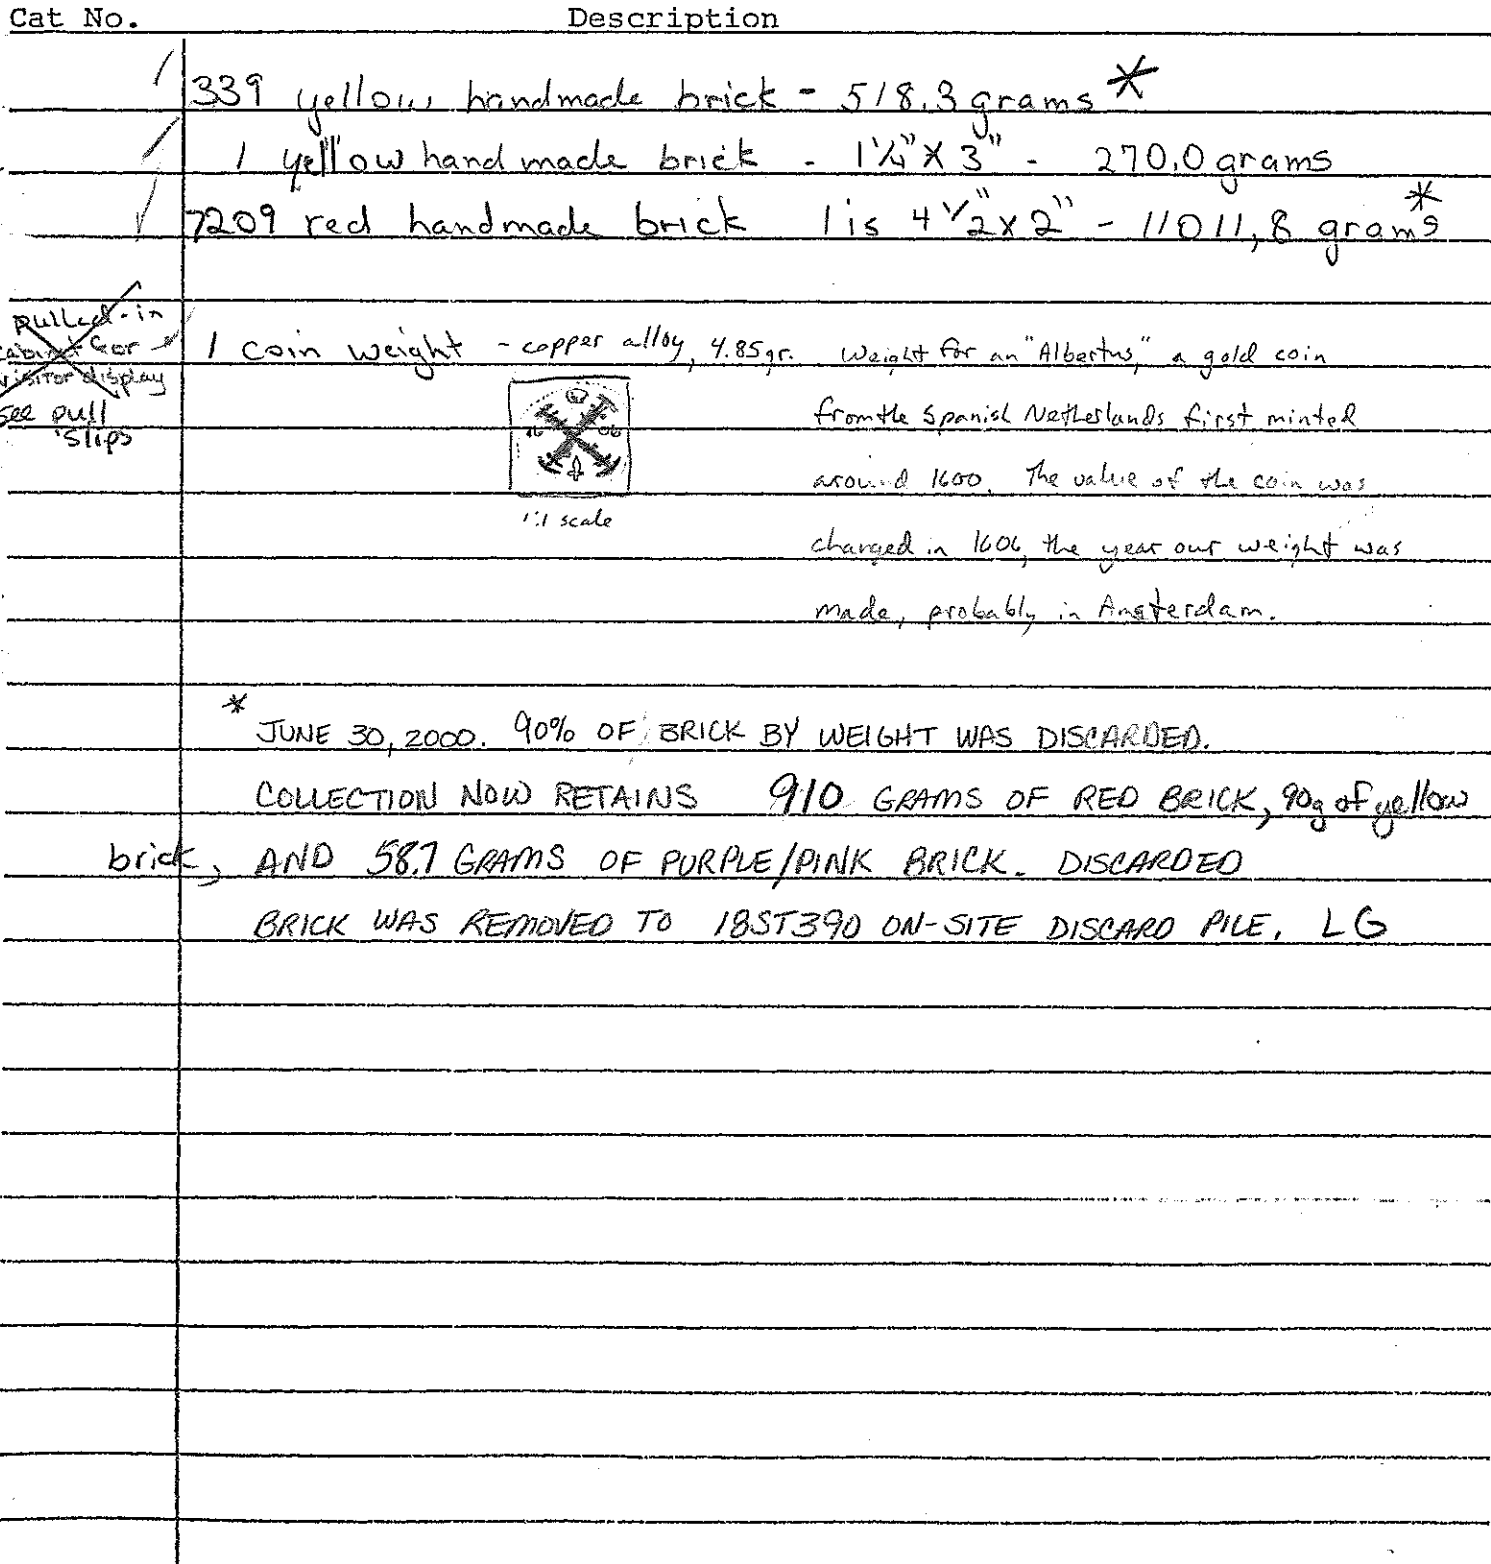 Cat No. Description
339 yellow handmade brick - 518.3 grams *
1 yellow handmade brick - 1¼" X 3" - 270.0 grams
7209 red handmade brick 1 is 4½" x 2" - 11011,8 grams *
pulled - in
cabinet for
visitor display
see pull
slips
1 coin weight - copper alloy, 4.85gr. Weight for an "Albertus," a gold coin
from the Spanish Netherlands first minted
around 1600. The value of the coin was
changed in 1606, the year our weight was
made, probably in Amsterdam.
16 06
1:1 scale
* JUNE 30, 2000. 90% OF BRICK BY WEIGHT WAS DISCARDED.
COLLECTION NOW RETAINS 910 GRAMS OF RED BRICK, 90g of yellow
brick, AND 58.7 GRAMS OF PURPLE/PINK BRICK. DISCARDED
BRICK WAS REMOVED TO 18ST390 ON-SITE DISCARD PILE. LG